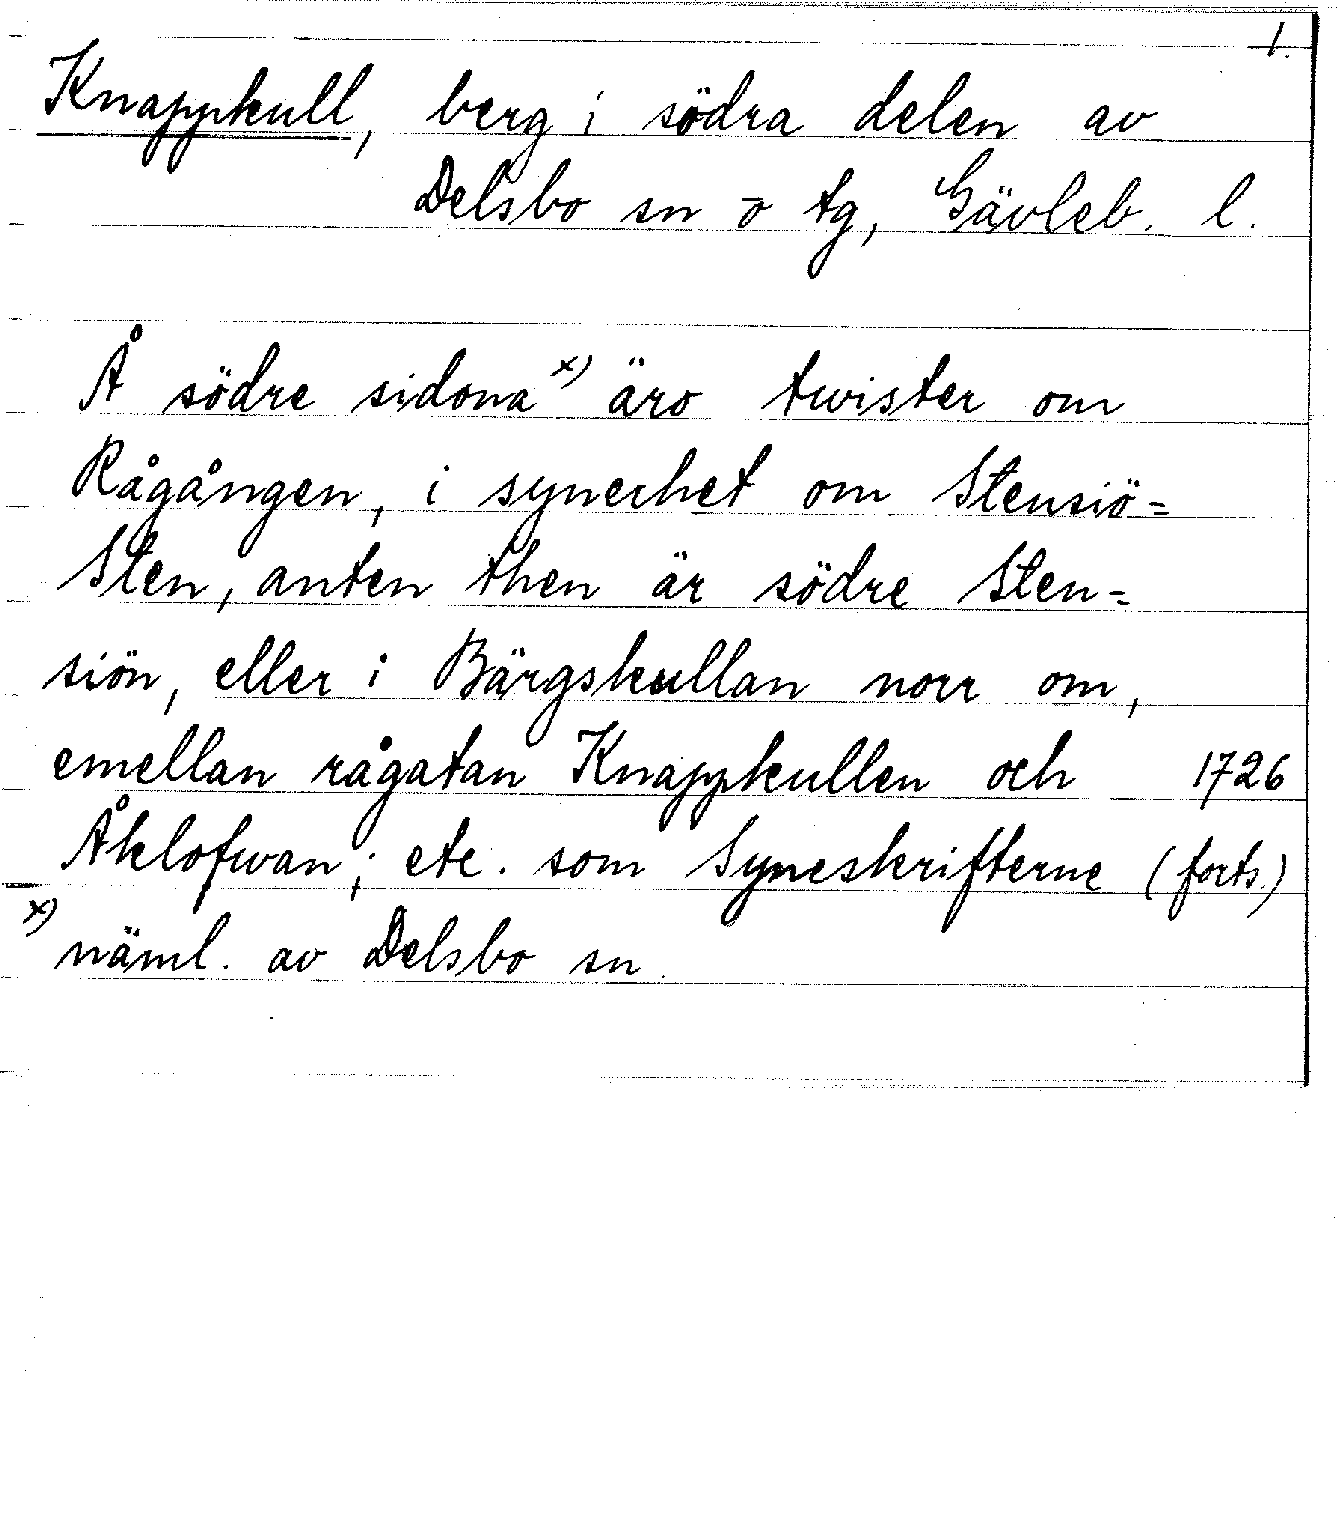 1.
Knappkull, berg i södra delen av
Delsbo sn o tg, Gävleb. l.
Å södre sidona x) äro twister om
Rågången, i synerhet om Stensiö=
Sten, anten then är södre Sten=
siön, eller i Bärgskullan norr om,
emellan rågatan Knappkullen och 1726
Åklofwan; etc. som Syneskrifterne (forts.)
x) näml. av Delsbo sn.